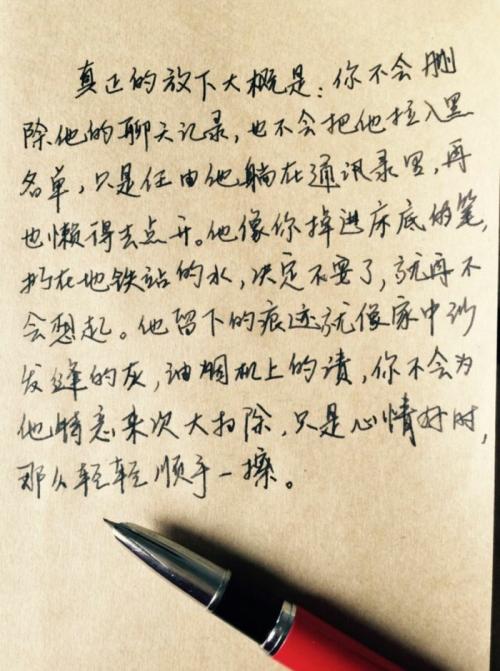 真正的放下大概是：你不会删
除他的聊天记录，也不会把他拉入黑
名单，只是任由他躺在通讯录里，再
也懒得去点开。他像你掉进床底的笔，
扔在地铁站的水，决定不要了，就再不
会想起。他留下的痕迹就像家中沙
发缝的灰，油烟机上的渍，你不会为
他特意来次大扫除，只是心情好时，
那么轻轻顺手一擦。